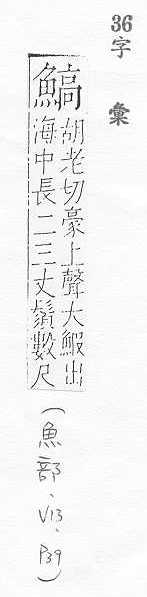 36字彙
鰝
胡老切豪上聲大鰕出
海中長二三丈鬚數尺
(魚部、V13、P39)